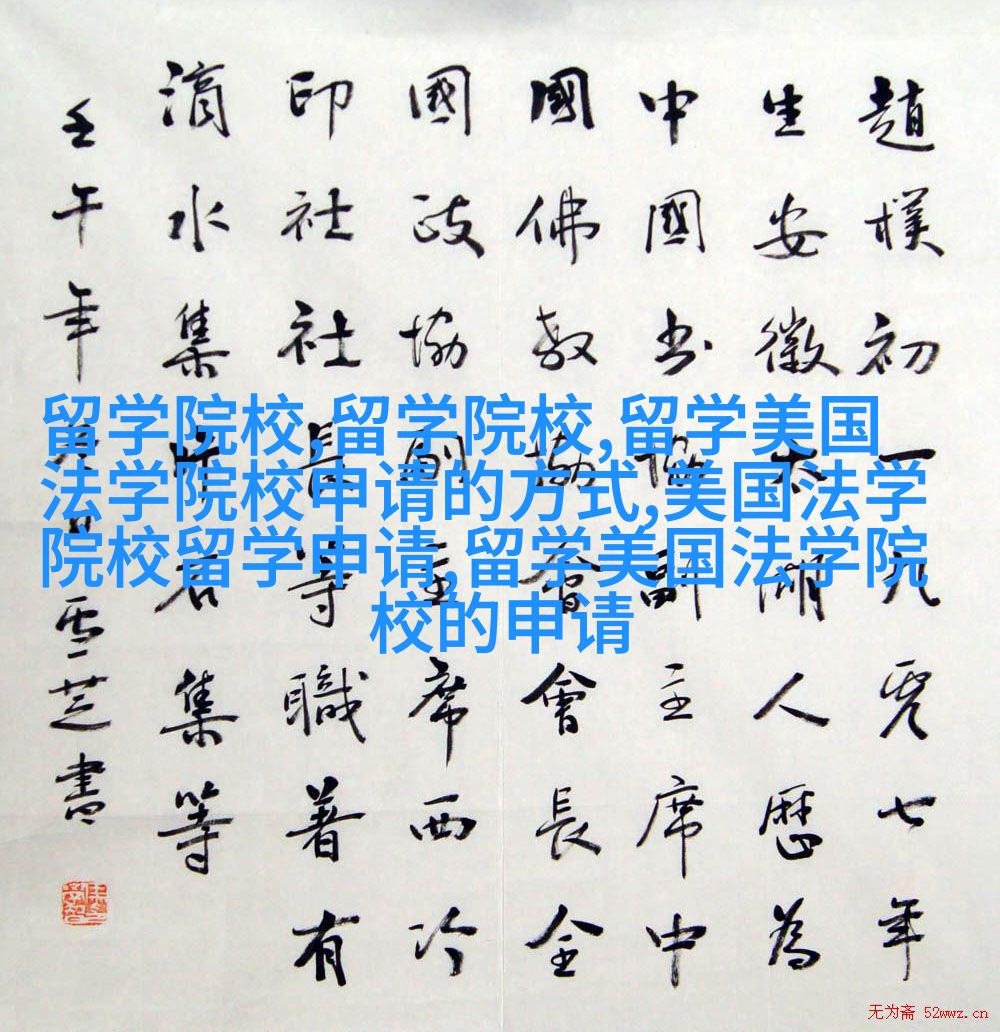 趙樸初一九零七年
生安徽太湖人歷為
中國书協副主席中
國佛教協會會長全
國政協副主席西泠
印社社長等職著有
滴水集片石集等
壬午年雪芝書
留学院校,留学院校,留学美国
法学院校申请的方式,美国法学
院校留学申请,留学美国法学院
校的申请
无为斋 52wwz.cn